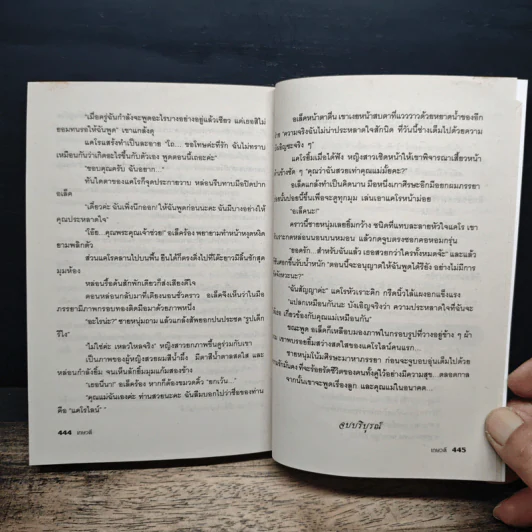 "เมื่อครู่ฉันกำลังจะพูดอะไรบางอย่างอยู่แล้วเชียว แต่เธอสิไม่
ยอมทนรอให้ฉันพูด" เขาแกล้งดุ
แคโรแสร้งทำเป็นละอาย "โอ... ขอโทษค่ะที่รัก ฉันไม่ทราบ
เหมือนกันว่าเกิดอะไรขึ้นกับตัวเอง พูดตอนนี้เถอะค่ะ"
"ขอบคุณครับ ฉันอยาก..."
ทันใดตาของแคโรก็จุดประกายวาบ หล่อนรีบทาบมือปิดปาก
อเล็ค
"เดี๋ยวค่ะ ฉันเพิ่งนึกออก! ให้ฉันพูดก่อนนะคะ ฉันมีบางอย่างให้
คุณประหลาดใจ"
"โอ๊ย...คุณพระคุณเจ้าช่วย!" อเล็คร้อง พยายามทำหน้าหงุดหงิด
ยามพลิกตัว
ส่วนแคโรคลานไปบนพื้น ยืนได้ก็ตรงดิ่งไปที่โต๊ะยาวมีลิ้นชักสุด
มุมห้อง
หล่อนรื้อค้นสักพักเดียวก็ส่งเสียงดีใจ
ตอนหล่อนกลับมาที่เตียงนอนชั่วคราว อเล็คจึงเห็นว่าในมือ
ภรรยามีภาพกรอบทองติดมือมาด้วยภาพหนึ่ง
"อะไรน่ะ?" ชายหนุ่มถาม แล้วแกล้งสัพยอกปนประชด "รูปเด็ก
รึไง"
"ไม่ใช่ค่ะ เหลวไหลจริง" หญิงสาวยกภาพขึ้นดูร่วมกับเขา
เป็นภาพของผู้หญิงสวยผมสีน้ำผึ้ง มีตาสีน้ำตาลสดใส และ
หล่อนกำลังยิ้ม จนเห็นลักยิ้มบุ๋มแก้มสองข้าง
"เธอนี่นา" อเล็คร้อง หากก็ต้องขมวดคิ้ว "ยกเว้น..."
"คุณแม่ฉันเองค่ะ ท่านสวยนะคะ ฉันลืมบอกไปว่าชื่อของท่าน
คือ "แคโรไลน์" "
444 เกษวดี
อเล็คหน้าตาตื่น เขาเงยหน้าสบตาที่แวววาวด้วยหยาดน้ำของอีก
"ความจริงฉันไม่น่าประหลาดใจสักนิด ที่วันนี้ช่างเต็มไปด้วยความ
บังเอิญซะจริง ๆ"
แคโรยิ้มเมื่อได้ฟัง หญิงสาวเชิดหน้าให้เขาพิจารณาเสี้ยวหน้า
ข้างชัด ๆ "คุณว่าฉันสวยเท่าคุณแม่มั้ยคะ?"
อเล็คแกล้งทำเป็นคิดนาน มือหนึ่งเกาศีรษะอีกมือยกผมภรรยา
เล่นเอาแคโรหน้าม่อย
"อเล็คนะ!"
คราวนี้ชายหนุ่มเลยยิ้มกว้าง ชนิดที่แทบละลายหัวใจแคโร เขา
หล่อนนอนบนหมอน แล้วกดจูบตรงซอกคอหอมกรุ่น
"ยอดรัก...สำหรับฉันแล้ว เธอสวยกว่าใครทั้งหมดจ้ะ" และแล้ว
"ตอนนี้จะอนุญาตให้ฉันพูดได้รึยัง อย่างไม่มีการ
"ฉันสัญญาค่ะ" แคโรหัวเราะคิก กรีดนิ้วไล้แผงอกแข็งแรง
"แปลกเหมือนกันนะ บังเอิญจริงว่า ความประหลาดใจที่ฉันจะ
เกี่ยวข้องกับคุณแม่เหมือนกัน"
ขณะพูด อเล็คก็เหลือบมองภาพในกรอบรูปที่วางอยู่ข้าง ๆ ผ้า
เขาพบรอยยิ้มสว่างสดใสของแคโรไลน์คนแรก...
ชายหนุ่มโน้มศีรษะมาหาภรรยา ก่อนจะจูบอบอุ่นเต็มไปด้วย
ที่จะร้อยรัดชีวิตของคนทั้งคู่ไว้อย่างมีความสุข...ตลอดกาล
จากนั้นเขาจะพูดเรื่องลูก และคุณแม่ในอนาคต...
จบบริบูรณ์
เกษวดี 445